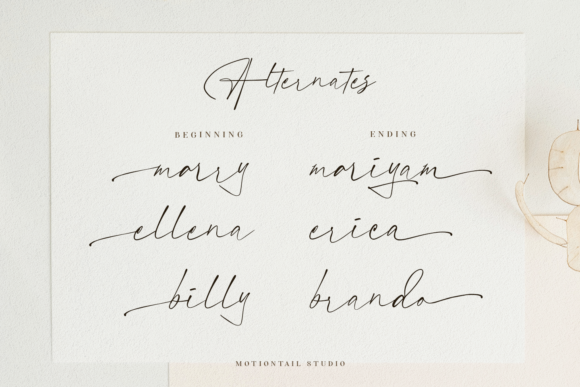 Alternates
BEGINNING ENDING
marry mariyam
ellena erica
billy brando
MOTIONTAIL STUDIO